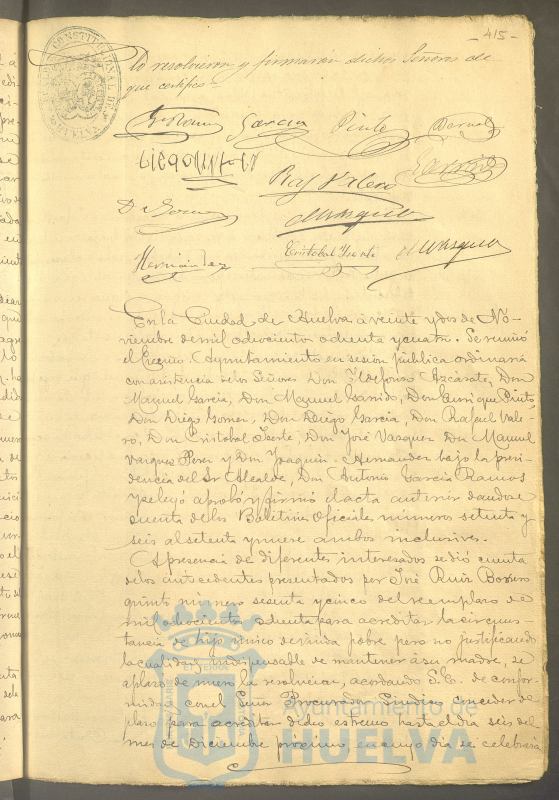 - 415 -
lo resolvieron y firmaron dichos Señores de
que certifico.
García Pinto Bernal
Garrido
Raf Valero
D. Gomez
M Vazquez
Hernandez Cristobal Iserte M Vazquez
En la Ciudad de Huelva á veinte y dos de No-
viembre de mil ochocientos ochenta y cuatro. Se reunió
el Excmo. Ayuntamiento en sesion pública ordinaria
con asistencia de los Señores Don Ildefonso Azcárate, Don
Manuel Garcia, Don Manuel Garrido, Don Enrique Pinto,
Don Diego Gomez, Don Diego Garcia, Don Rafael Vale-
ro, Don Cristobal Iserte, Don José Vazquez Don Manuel
Vazquez Perez y Don Joaquin Hernandez bajo la presi-
dencia del Sr. Alcalde, Don Antonio Garcia Ramos
y se leyó aprobó y firmó el acta anterior dandose
cuenta de los Boletines Oficiales números setenta y
seis al setenta y nueve ambos inclusives.
A presencia de diferentes interesados se dió cuenta
de los antecedentes presentados por José Ruiz Borrero
quinto número sesenta y cinco del reemplazo de
mil ochocientos ochenta para acreditar la circuns-
tancia de hijo unico de viuda pobre pero no justificando
la cualidad indispensable de mantener á su madre, se
aplazó de nuevo la resolucion, acordando S.E. de confor-
midad con el Señor Procurador Sindico conceder de
plazo para acreditar dicho estremo hasta el dia seis del
mes de Diciembre próximo en cuyo dia se celebrará
Ayuntamiento de
HUELVA